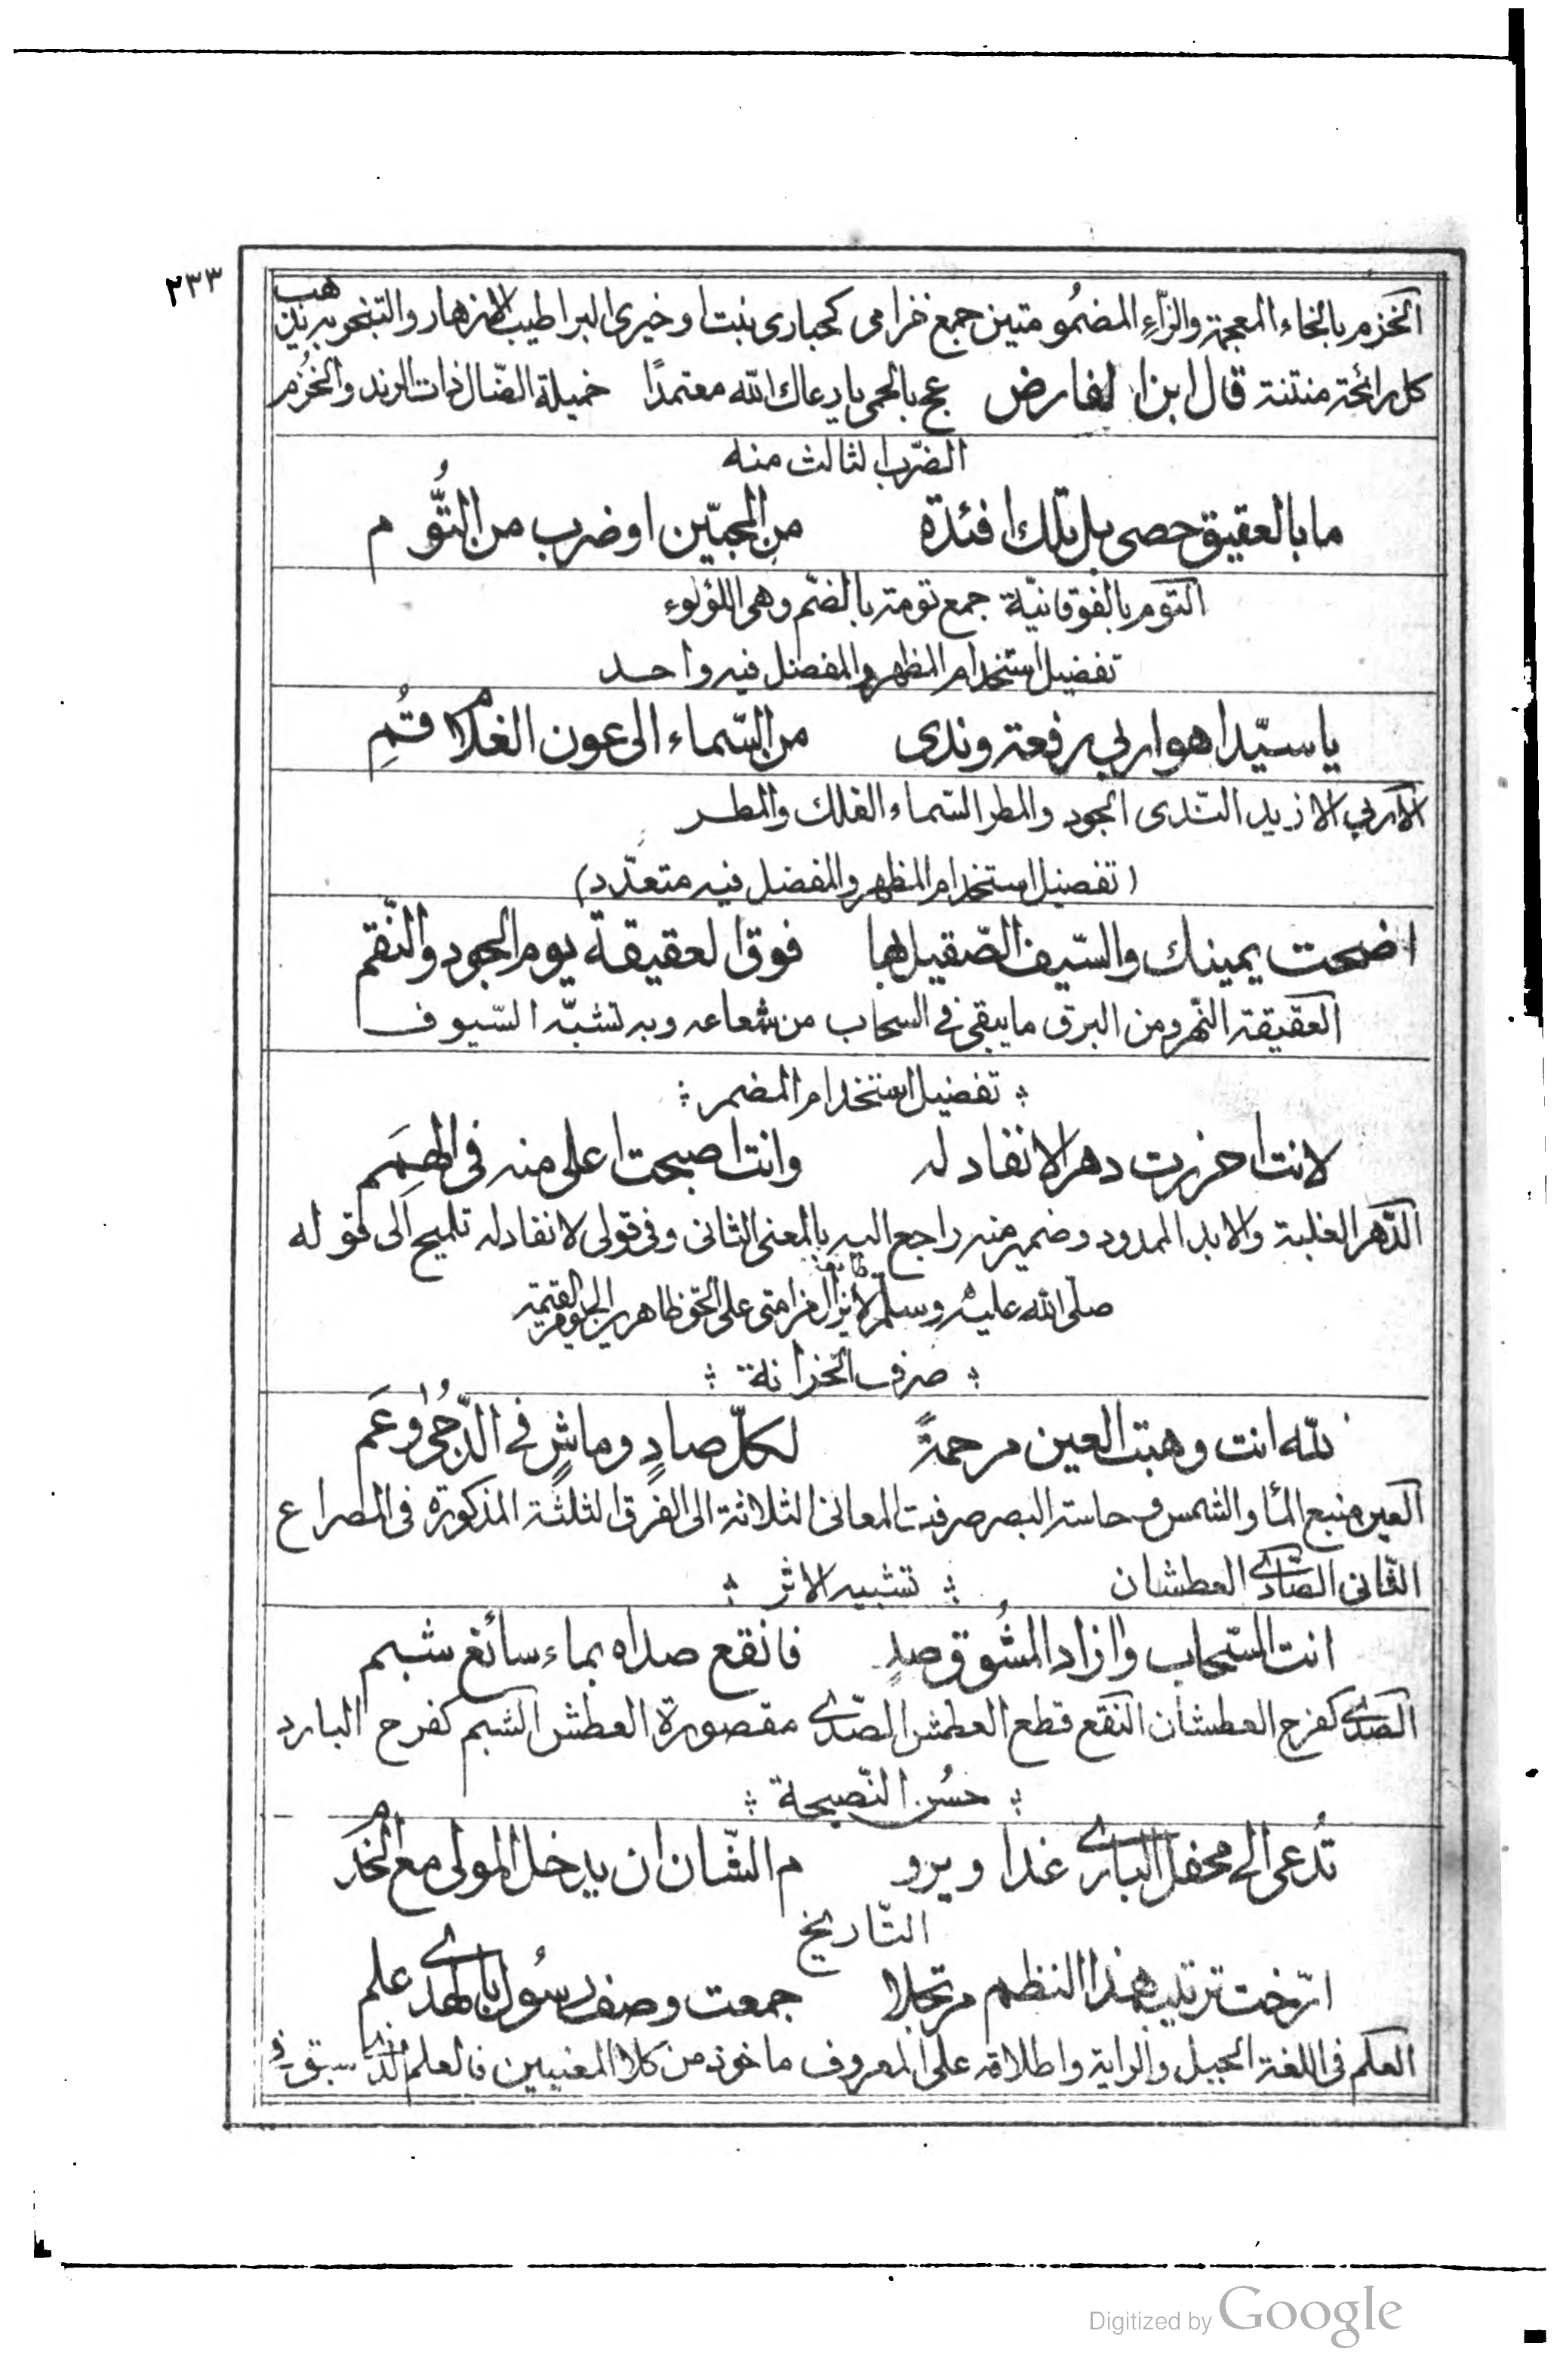 ٢٣٣
الخزم بالخاء المعجمة والزاء المضمومتين جمع خزامى كحبارى نبت او خيرى البر اطيب الازهار والتبخير به يذهب
كل رائحة منتنة قال ابن الفارض عج بالحمى يا رعاك الله معتمدًا خميلة الضال ذات الرند والخُزُم
الضرب الثالث منه
ما بالعقيق حصى بل تلك افئدة من المحبّين او ضرب من التُّوم
التوم بالفوقانيّة جمع تومة بالضّم وهى اللؤلوء
تفضيل استخدام المظهر والمفضل فيه واحد
يا سيّدا هو اربى رفعة وندى من السّماء الى عون الغلام قُمِ
الاربى الازيد النّدى الجود والمطر السّماء الفلك والمطر
(تفضيل استخدام المظهر والمفضل فيه متعدّد)
اضحت يمينك والسّيف الصّقيل بها فوق العقيقة يوم الجود والنّقم
العقيقة النهر ومن البرق ما يبقى فى السحاب من شعاعه وبه تشبّه السّيوف
تفضيل استخدام المضمر
لانت احرزت دهرا لا نفاد له وانت اصبحت اعلى منه فى الهِمَم
الدّهر الغلبة والابد الممدود وضمير منه راجع اليه بالمعنى الثانى وفى قولى لا نفاد له تلميح الى قوله
صلى الله عليه وسلم لا يزال طائفة من امتى على الحق ظاهرين الى يوم القيمة
صرف الخزانة
لله انت وهبت العين مرحمةً لكلّ صادٍ وماشٍ فى الدّجُى وعَم
العين منبع الماء والشمس وحاسة البصر صرفت المعانى الثلاثة الى الفرق الثلثة المذكورة فى المصراع
الثانى الصّادى العطشان تشبيه الاثر
انت السّحاب وازاد المشُوق صدٍ فانقع صداه بماء سائغ شبم
الصّدى كفرح العطشان النقع قطع العطش الصّدى مقصورة العطش الشبم كفرح البارد
حسُن النّصيحة
تُدعى الى محفل البارى غدا ويرو م الشّان ان يدخل المولى مع الخَدَم
التّاريخ
ارّخت ترتيب هذا النظم مرتجلا جمعت وصف رسُول بالهدى علم
العلم فى اللغة الجبيل والراية واطلاقه على المعروف ماخوذ من كلا المعنيين فالعلم الذى سبق فى